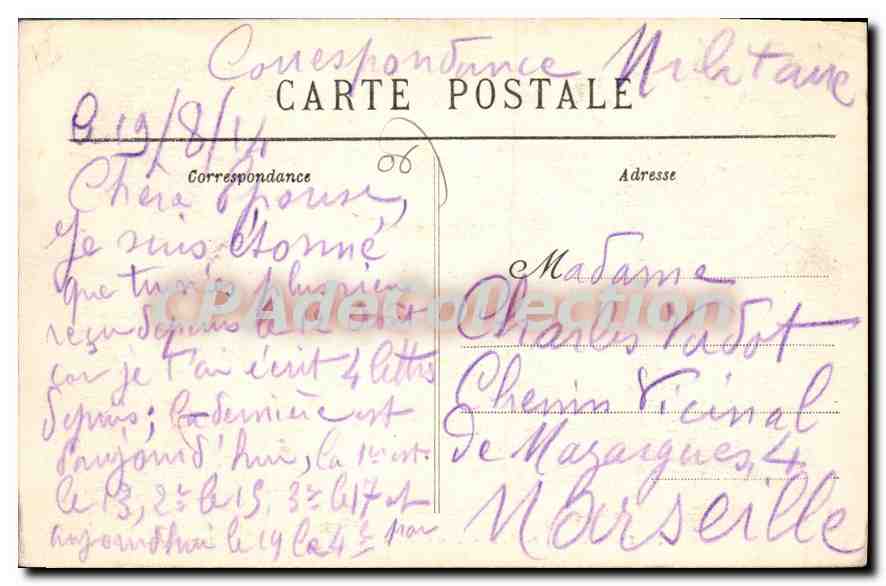 Correspondance Militaire
CARTE POSTALE
19/8/14
Correspondance
Adresse
Chère Épouse,
je suis étonné
que tu n'es plus rien
reçu depuis le 12 août
car je t'ai écrit 4 lettres
depuis; la dernière est
d'aujourd'hui, la 1re est
le 13, 2e le 15, 3e le 17 et
aujourd'hui le 19 la 4e par
Madame
Charles Vadot
Chemin Vicinal
de Mazargues, 4
Marseille
CPAdeCollection